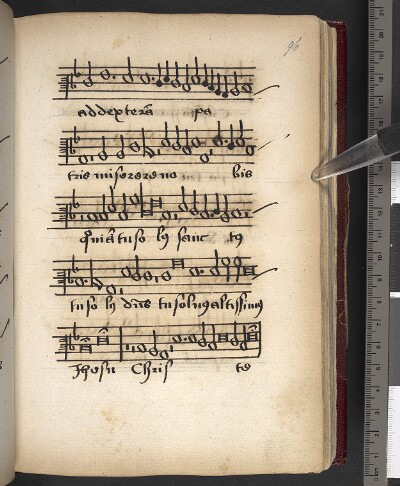 96
ad dexterā pa
tris miserere no bis
Quiā tu so lꝰ sanc tꝰ
tu so lꝰ dñs tu solus altissimꝰ
Jhesu Chris te